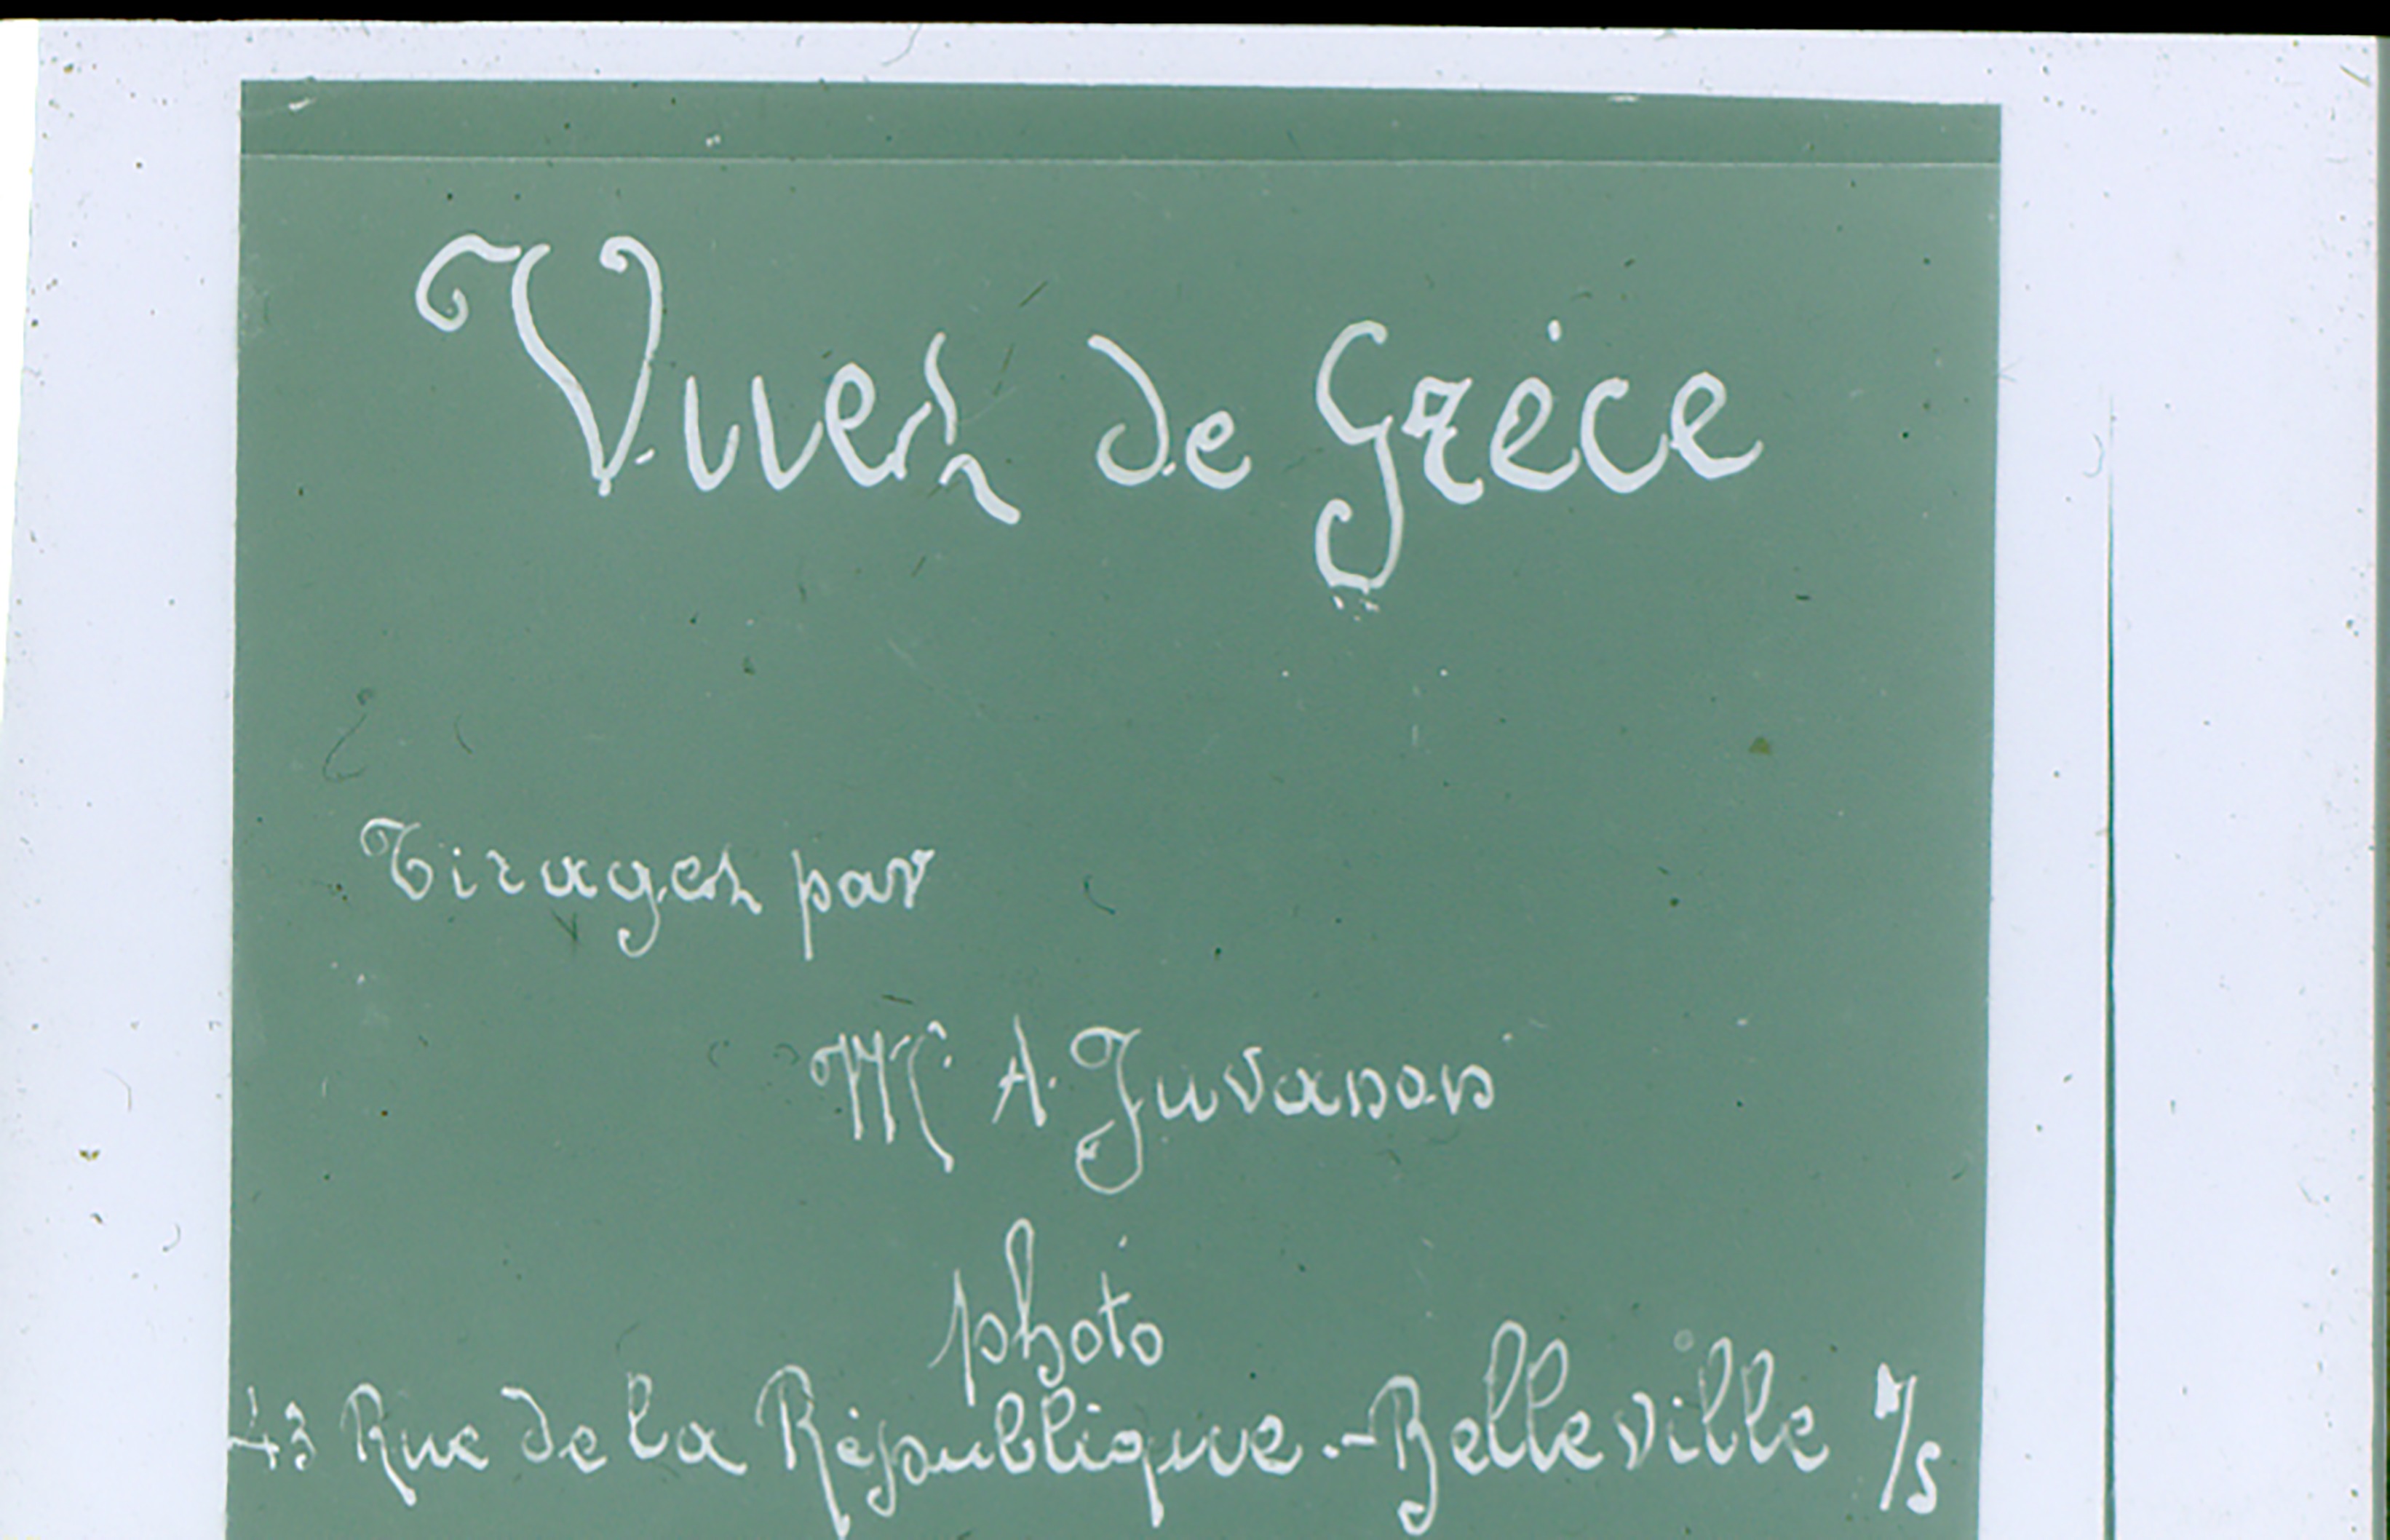 Vues de Grèce
Tirages par
Mr. A. Juvanon
photo
43 Rue de la République.-Belleville s/S